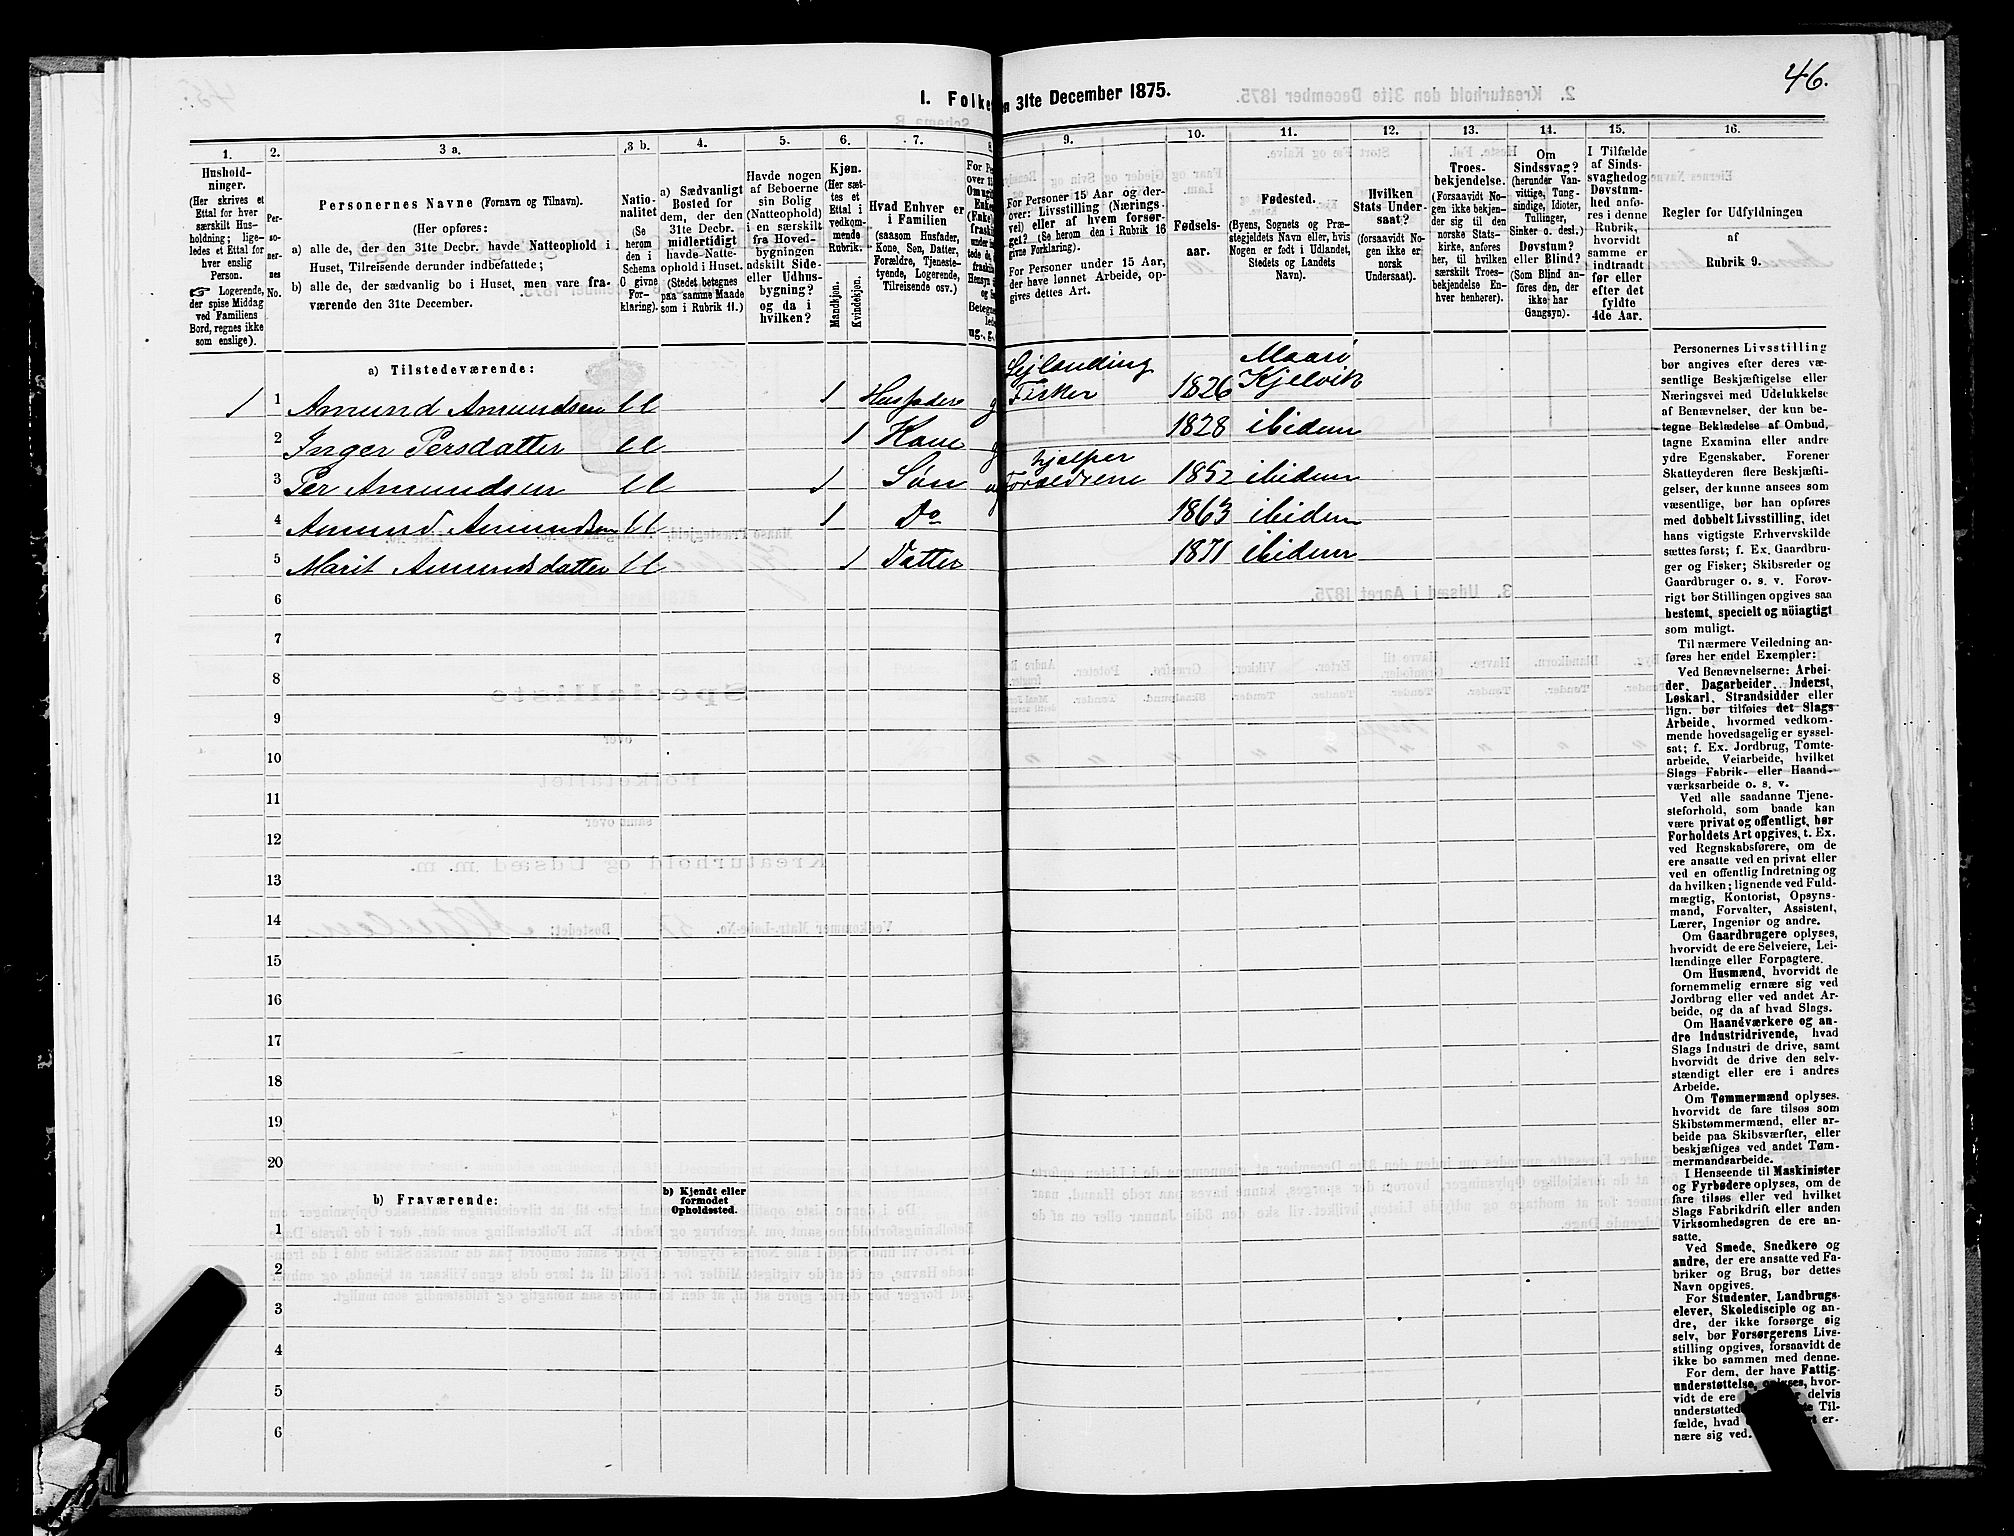 46.
I. Folke
n 31te December 1875.
1.
2.
3 a.
3 b.
4.
5.
6.
7.
8.
9.
10.
11.
12.
13.
14.
15.
16.
Hushold-
ninger.
(Her skrives et
Ettal for hver
særskilt Hus-
holdning; lige-
ledes et Ettal for
hver enslig
Person.
☞ Logerende,
der spise Middag
ved Familiens
Bord, regnes ikke
som enslige).
Per-
so-
ner-
nes
No.
Personernes Navne (Fornavn og Tilnavn).
(Her opføres:
a) alle de, der den 31te Decbr. havde Natteophold i
Huset, Tilreisende derunder indbefattede;
b) alle de, der sædvanlig bo i Huset, men vare fra-
værende den 31te December.
Natio-
nalitet
(Se
herom
den i
Schema
O givne
For-
klaring).
a) Sædvanligt
Bosted for
dem, der den
31te Decbr.
midlertidigt
havde Natte-
ophold i Huset.
(Stedet betegnes
paa samme Maade
som i Rubrik 11.)
Havde nogen
af Beboerne
sin Bolig
(Natteophold)
i en særskilt
fra Hoved-
bygningen
adskilt Side-
eller Udhus-
bygning?
og da i
hvilken?
Kjøn.
(Her sæt-
tes et
Ettal i
vedkom-
mende
Rubrik.
Mandkjøn.
Kvindekjøn.
Hvad Enhver er
i Familien
(saasom Husfader,
Kone, Søn, Datter,
Forældre, Tjeneste-
tyende, Logerende,
Tilreisende osv.)
For Personer 15 Aar og der-
over: Livsstilling (Nærings-
vei) eller af hvem forsør-
get? (Se herom den i Rubrik 16
givne Forklaring).
For Personer under 15 Aar,
der have lønnet Arbeide, op-
gives dettes Art.
Fødsels-
aar.
Fødested.
(Byens, Sognets og Præ-
stegjeldets Navn eller, hvis
Nogen er født i Udlandet,
Stedets og Landets
Navn).
Hvilken
Stats Under-
saat?
(forsaavidt No-
gen ikke er
norsk
Undersaat).
Troes-
bekjendelse.
(Forsaavidt No-
gen ikke bekjen-
der sig til den
norske Stats-
kirke, anføres
her, til hvilken
særskilt Troes-
bekjendelse En-
hver henhører).
Om
Sindssvag?
(herunder Van-
vittige, Tung-
sindige, Idioter,
Tullinger,
Sinker o. desl.)
Døvstum?
eller Blind?
(Som Blind an-
føres den, der
ikke har
Gangsyn).
I Tilfælde
af Sinds-
svaghed og
Døvstum-
hed anfø-
res i denne
Rubrik,
hvorvidt
samme er
indtraadt
før eller
efter det
fyldte
4de Aar.
Regler for Udfyldningen
af
Rubrik 9.
a) Tilstedeværende:
1 1 Amund Amundsen 1 Husfader g Sejlanding Fisker 1826 Maasø Kjelvik
2 Inger Persdatter 1 Kone g 1828 ibidem
3 Per Amundsen 1 Søn hjælper Foreldrene 1852 ibidem
4 Amund Amundsen 1 Do 1863 ibidem
5 Marit Amundsdatter 1 Datter 1871 ibidem
6
7
8
9
10
11
12
13
14
15
16
17
18
19
20
b) Fraværende:
b) Kjendt eller
formodet
Opholdssted.
1
2
3
4
5
6
Personernes Livsstilling
bør angives efter deres væ-
sentlige Beskjæftigelse eller
Næringsvei med Udelukkelse
af Benævnelser, der kun be-
tegne Beklædelse af Ombud,
tagne Examina eller andre
ydre Egenskaber. Forener
Skatteyderen flere Beskjæfti-
gelser, der kunne ansees som
væsentlige, bør han opføres
med dobbelt Livsstilling, idet
hans vigtigste Erhvervskilde
sættes først; f. Ex. Gaardbru-
ger og Fisker; Skibsreder og
Gaardbruger o. s. v. Forøv-
rigt bør Stillingen opgives saa
bestemt, specielt og nöiagtigt
som muligt.
Til nærmere Veiledning an-
føres her endel Exempler:
Ved Benævnelserne: Arbei-
der, Dagarbeider, Inderst,
Løskarl, Strandsidder eller
lign. bør tilføies det Slags
Arbeide, hvormed vedkom-
mende hovedsagelig er syssel-
sat; f. Ex. Jordbrug, Tømte-
arbeide, Veiarbeide, hvilket
Slags Fabrik- eller Haand-
værksarbeide o. s. v.
Ved alle saadanne Tjene-
steforhold, som baade kan
være privat og offentligt, bør
Forholdets Art opgives, t. Ex.
ved Regnskabsførere, om de
ere ansatte ved en privat eller
ved en offentlig Indretning og
da hvilken; lignende ved Fuld-
mægtig, Kontorist, Opsyns-
mand, Forvalter, Assistent,
Lærer, Ingeniør og andre.
Om Gaardbrugere oplyses,
hvorvidt de ere Selveiere, Lei-
lændinge eller Forpagtere.
Om Husmænd, hvorvidt de
fornemmelig ernære sig ved
Jordbrug eller ved andet Ar-
beide, og da af hvad Slags.
Om Haandværkere og an-
dre Industridrivende, hvad
Slags Industri de drive, samt
hvorvidt de drive den selv-
stændigt eller ere i andres
Arbeide.
Om Tømmermænd oplyses,
hvorvidt de fare tilsøs som
Skibstømmermænd, eller ar-
beide paa Skibsværfter, eller
beskjæftiges ved andet Tøm-
mermandsarbeide.
I Henseende til Maskinister
og Fyrbødere oplyses, om de
fare tilsøs eller ved hvilket
Slags Fabrikdrift eller anden
Virksomhedsgren de ere an-
satte.
Ved Smede, Snedkere og
andre, der ere ansatte ved Fa-
briker og Brug, bør dettes
Navn opgives.
For Studenter, Landbrugs-
elever, Skoledisciple og an-
dre, der ikke forsørge sig
selv, bør Forsørgerens Livs-
stilling opgives, forsaavidt de
ikke bo sammen med denne.
For dem, der have Fattig-
understøttelse, oplyses, hvor-
vidt de ere delvis
understøttede Til-
fælde, hvad er-
nære sig ved.